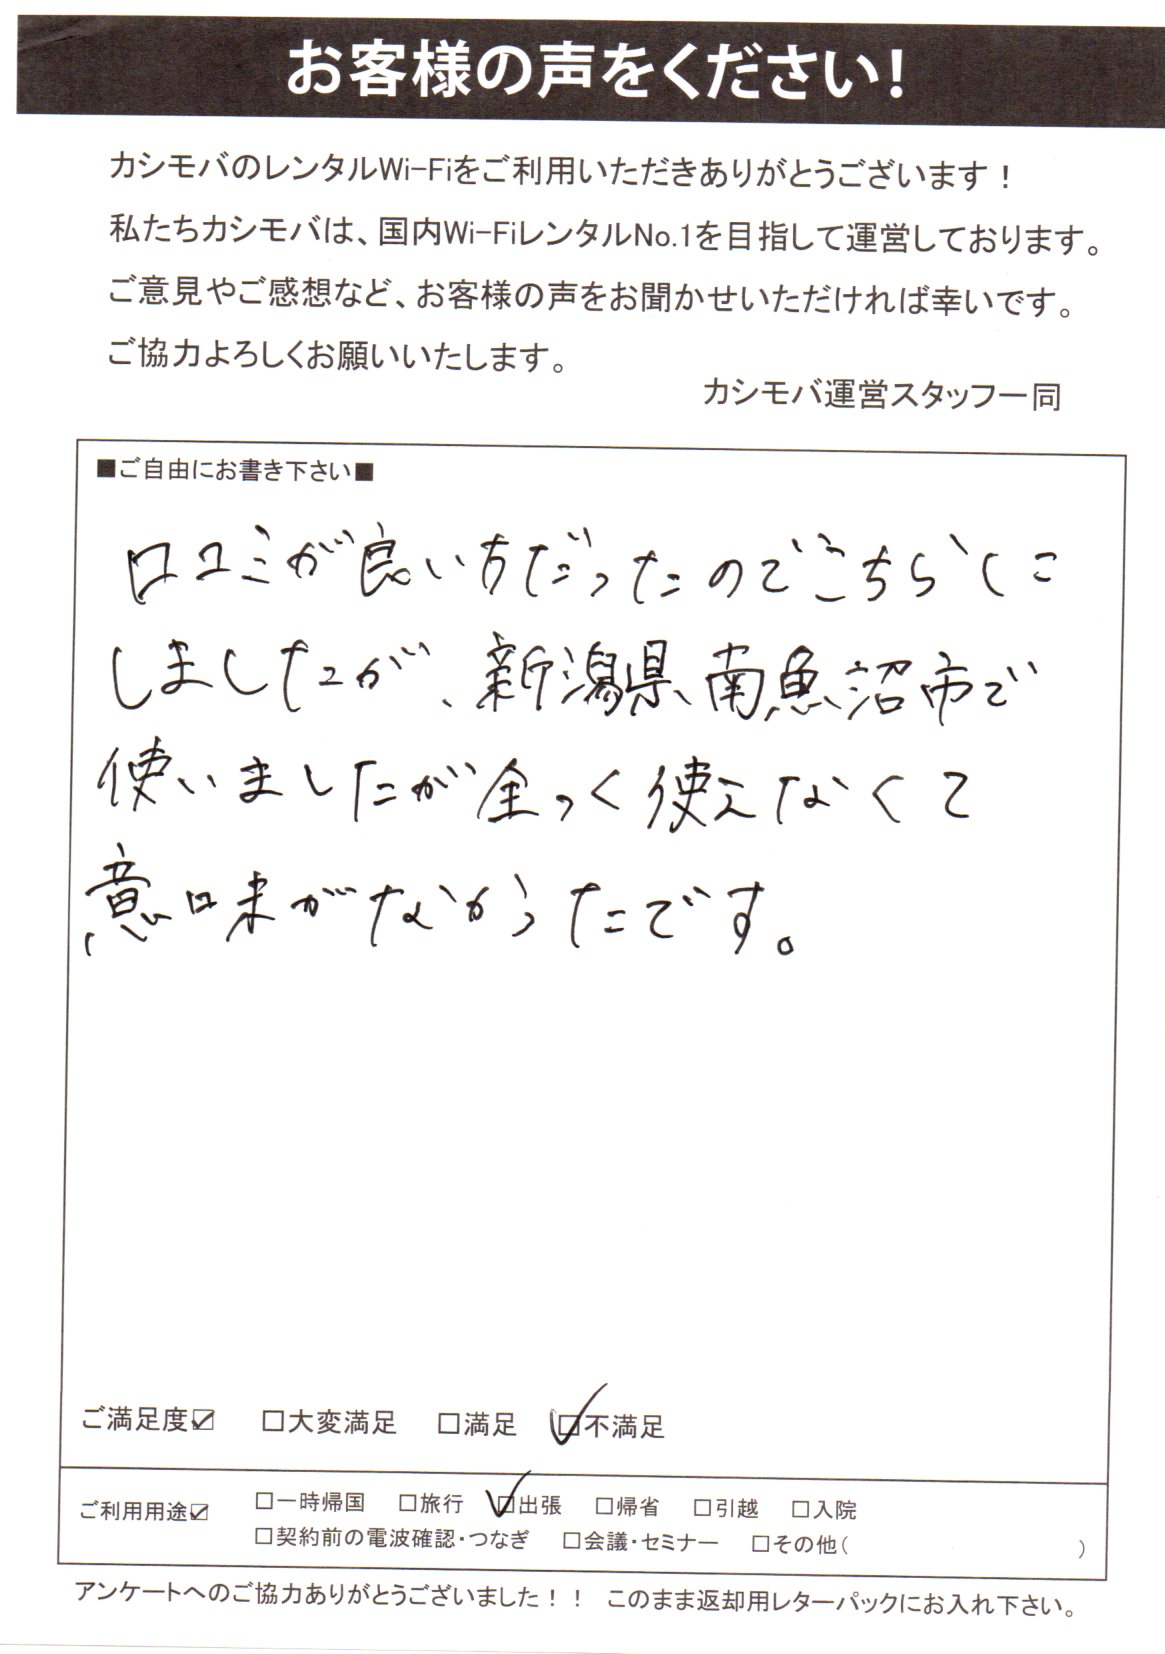 お客様の声をください!
カシモバのレンタルWi-Fiをご利用いただきありがとうございます！
私たちカシモバは、国内Wi-FiレンタルNo.1を目指して運営しております。
ご意見やご感想など、お客様の声をお聞かせいただければ幸いです。
ご協力よろしくお願いいたします。
カシモバ運営スタッフ一同
■ご自由にお書き下さい■
口コミが良い方だったのでこちらに
しましたが、新潟県、南魚沼市で
使いましたが全っく使えなくて
意味がなかったです。
ご満足度☑ □大変満足 □満足 ☑不満足
ご利用用途☑ □一時帰国 □旅行 ☑出張 □帰省 □引越 □入院
□契約前の電波確認・つなぎ □会議・セミナー □その他（ ）
アンケートへのご協力ありがとうございました！！ このまま返却用レターパックにお入れ下さい。